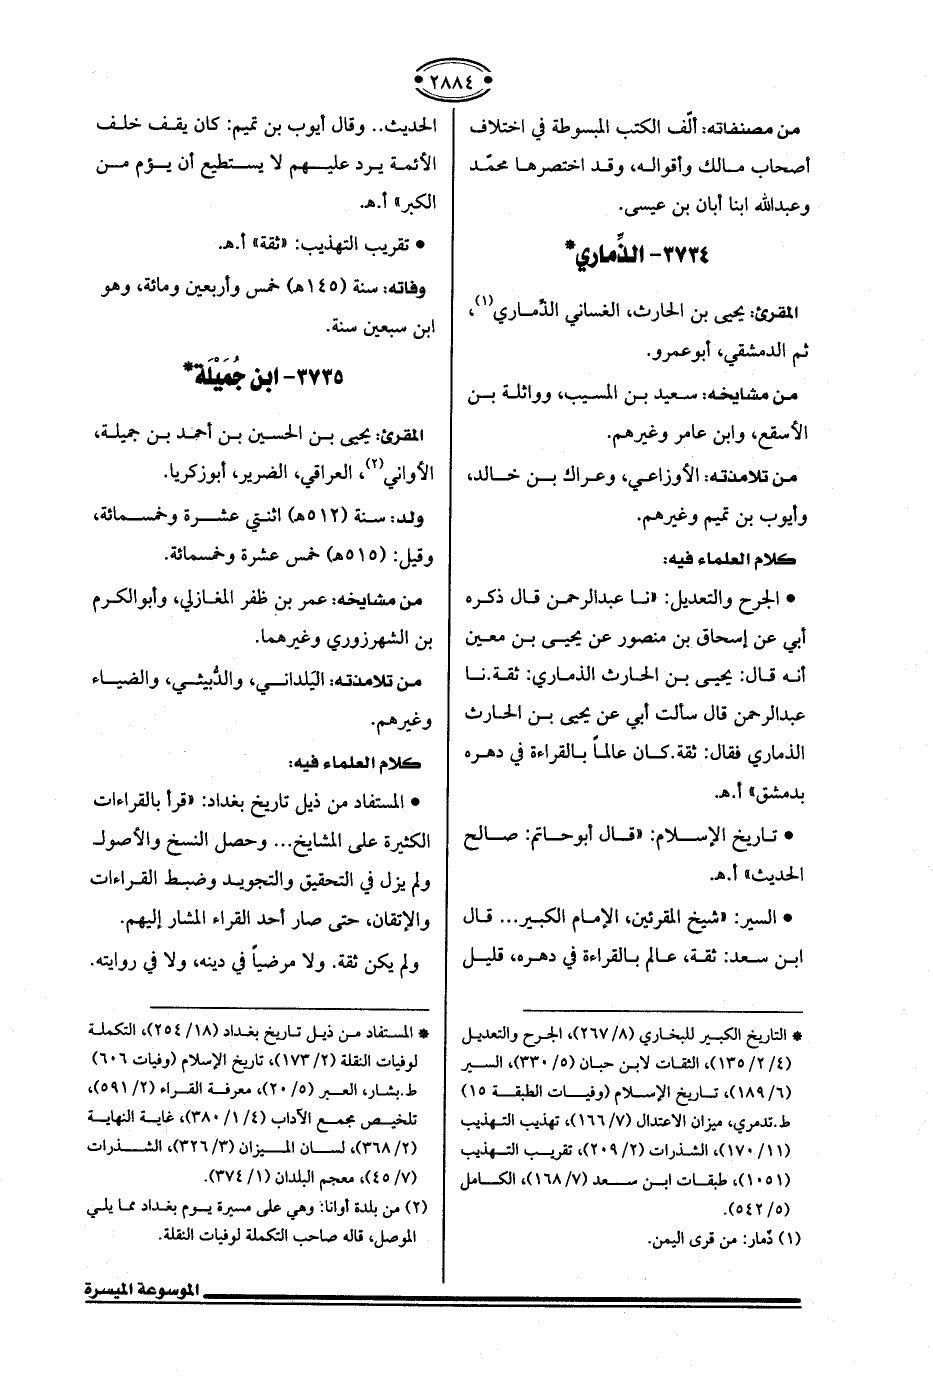 ٢٨٨٤
من مصنفاته: ألّف الكتب المبسوطة في اختلاف
أصحاب مالك وأقواله، وقد اختصرها محمّد
وعبدالله ابنا أبان بن عيسى.
٣٧٣٤- الذِّماري*
المقرئ: يحيى بن الحارث، الغساني الذَّماري(١)،
ثم الدمشقي، أبوعمرو.
من مشايخه: سعيد بن المسيب، وواثلة بن
الأسقع، وابن عامر وغيرهم.
من تلامذته: الأوزاعي، وعراك بن خالد،
وأيوب بن تميم وغيرهم.
كلام العلماء فيه:
• الجرح والتعديل: «نا عبدالرحمن قال ذكره
أبي عن إسحاق بن منصور عن يحيى بن معين
أنه قال: يحيى بن الحارث الذماري: ثقة.نا
عبدالرحمن قال سألت أبي عن يحيى بن الحارث
الذماري فقال: ثقة.كان عالماً بالقراءة في دهره
بدمشق» أ.هـ.
• تاريخ الإسلام: «قال أبوحاتم: صالح
الحديث» أ.هـ.
• السير: «شيخ المقرئين، الإمام الكبير... قال
ابن سعد: ثقة، عالم بالقراءة في دهره، قليل
* التاريخ الكبير للبخاري (٢٦٧/٨)، الجرح والتعديل
(١٣٥/٢/٤)، الثقات لابن حبان (٣٣٠/٥)، السير
(١٨٩/٦)، تاريخ الإسلام (وفيات الطبقة ١٥)
ط.تدمري، ميزان الاعتدال (١٦٦/٧)، تهذيب التهذيب
(١٧٠/١١)، الشذرات (٢٠٩/٢)، تقريب التهذيب
(١٠٥١)، طبقات ابن سعد (١٦٨/٧)، الكامل
(٥٤٢/٥).
(١) ذَمار: من قرى اليمن.
الحديث.. وقال أيوب بن تميم: كان يقف خلف
الأئمة يرد عليهم لا يستطيع أن يؤم من
الكبر» أ.هـ.
• تقريب التهذيب: «ثقة» أ.هـ.
وفاته: سنة (١٤٥هـ) خمس وأربعين ومائة، وهو
ابن سبعين سنة.
٣٧٣٥- ابن جُمَيْلَة*
المقرئ: يحيى بن الحسين بن أحمد بن جميلة،
الأواني(٢)، العراقي، الضرير، أبوزكريا.
ولد: سنة (٥١٢هـ) اثنتي عشرة وخمسمائة،
وقيل: (٥١٥هـ) خمس عشرة وخمسمائة.
من مشايخه: عمر بن ظفر المغازلي، وأبوالكرم
بن الشهرزوري وغيرهما.
من تلامذته: اليَلداني، والدُّبيثي، والضياء
وغيرهم.
كلام العلماء فيه:
• المستفاد من ذيل تاريخ بغداد: «قرأ بالقراءات
الكثيرة على المشايخ... وحصل النسخ والأصول
ولم يزل في التحقيق والتجويد وضبط القراءات
والإتقان، حتى صار أحد القراء المشار إليهم.
ولم يكن ثقة. ولا مرضياً في دينه، ولا في روايته.
* المستفاد من ذيل تاريخ بغداد (٢٥٤/١٨)، التكملة
لوفيات النقلة (١٧٣/٢)، تاريخ الإسلام (وفيات ٦٠٦)
ط.بشار، العبر (٢٠/٥)، معرفة القراء (٥٩١/٢)،
تلخيص مجمع الآداب (٣٨٠/١/٤)، غاية النهاية
(٣٦٨/٢)، لسان الميزان (٣٢٦/٣)، الشذرات
(٤٥/٧)، معجم البلدان (٣٧٤/١).
(٢) من بلدة أوانا: وهي على مسيرة يوم بغداد مما يلي
الموصل، قاله صاحب التكملة لوفيات النقلة.
الموسوعة الميسرة